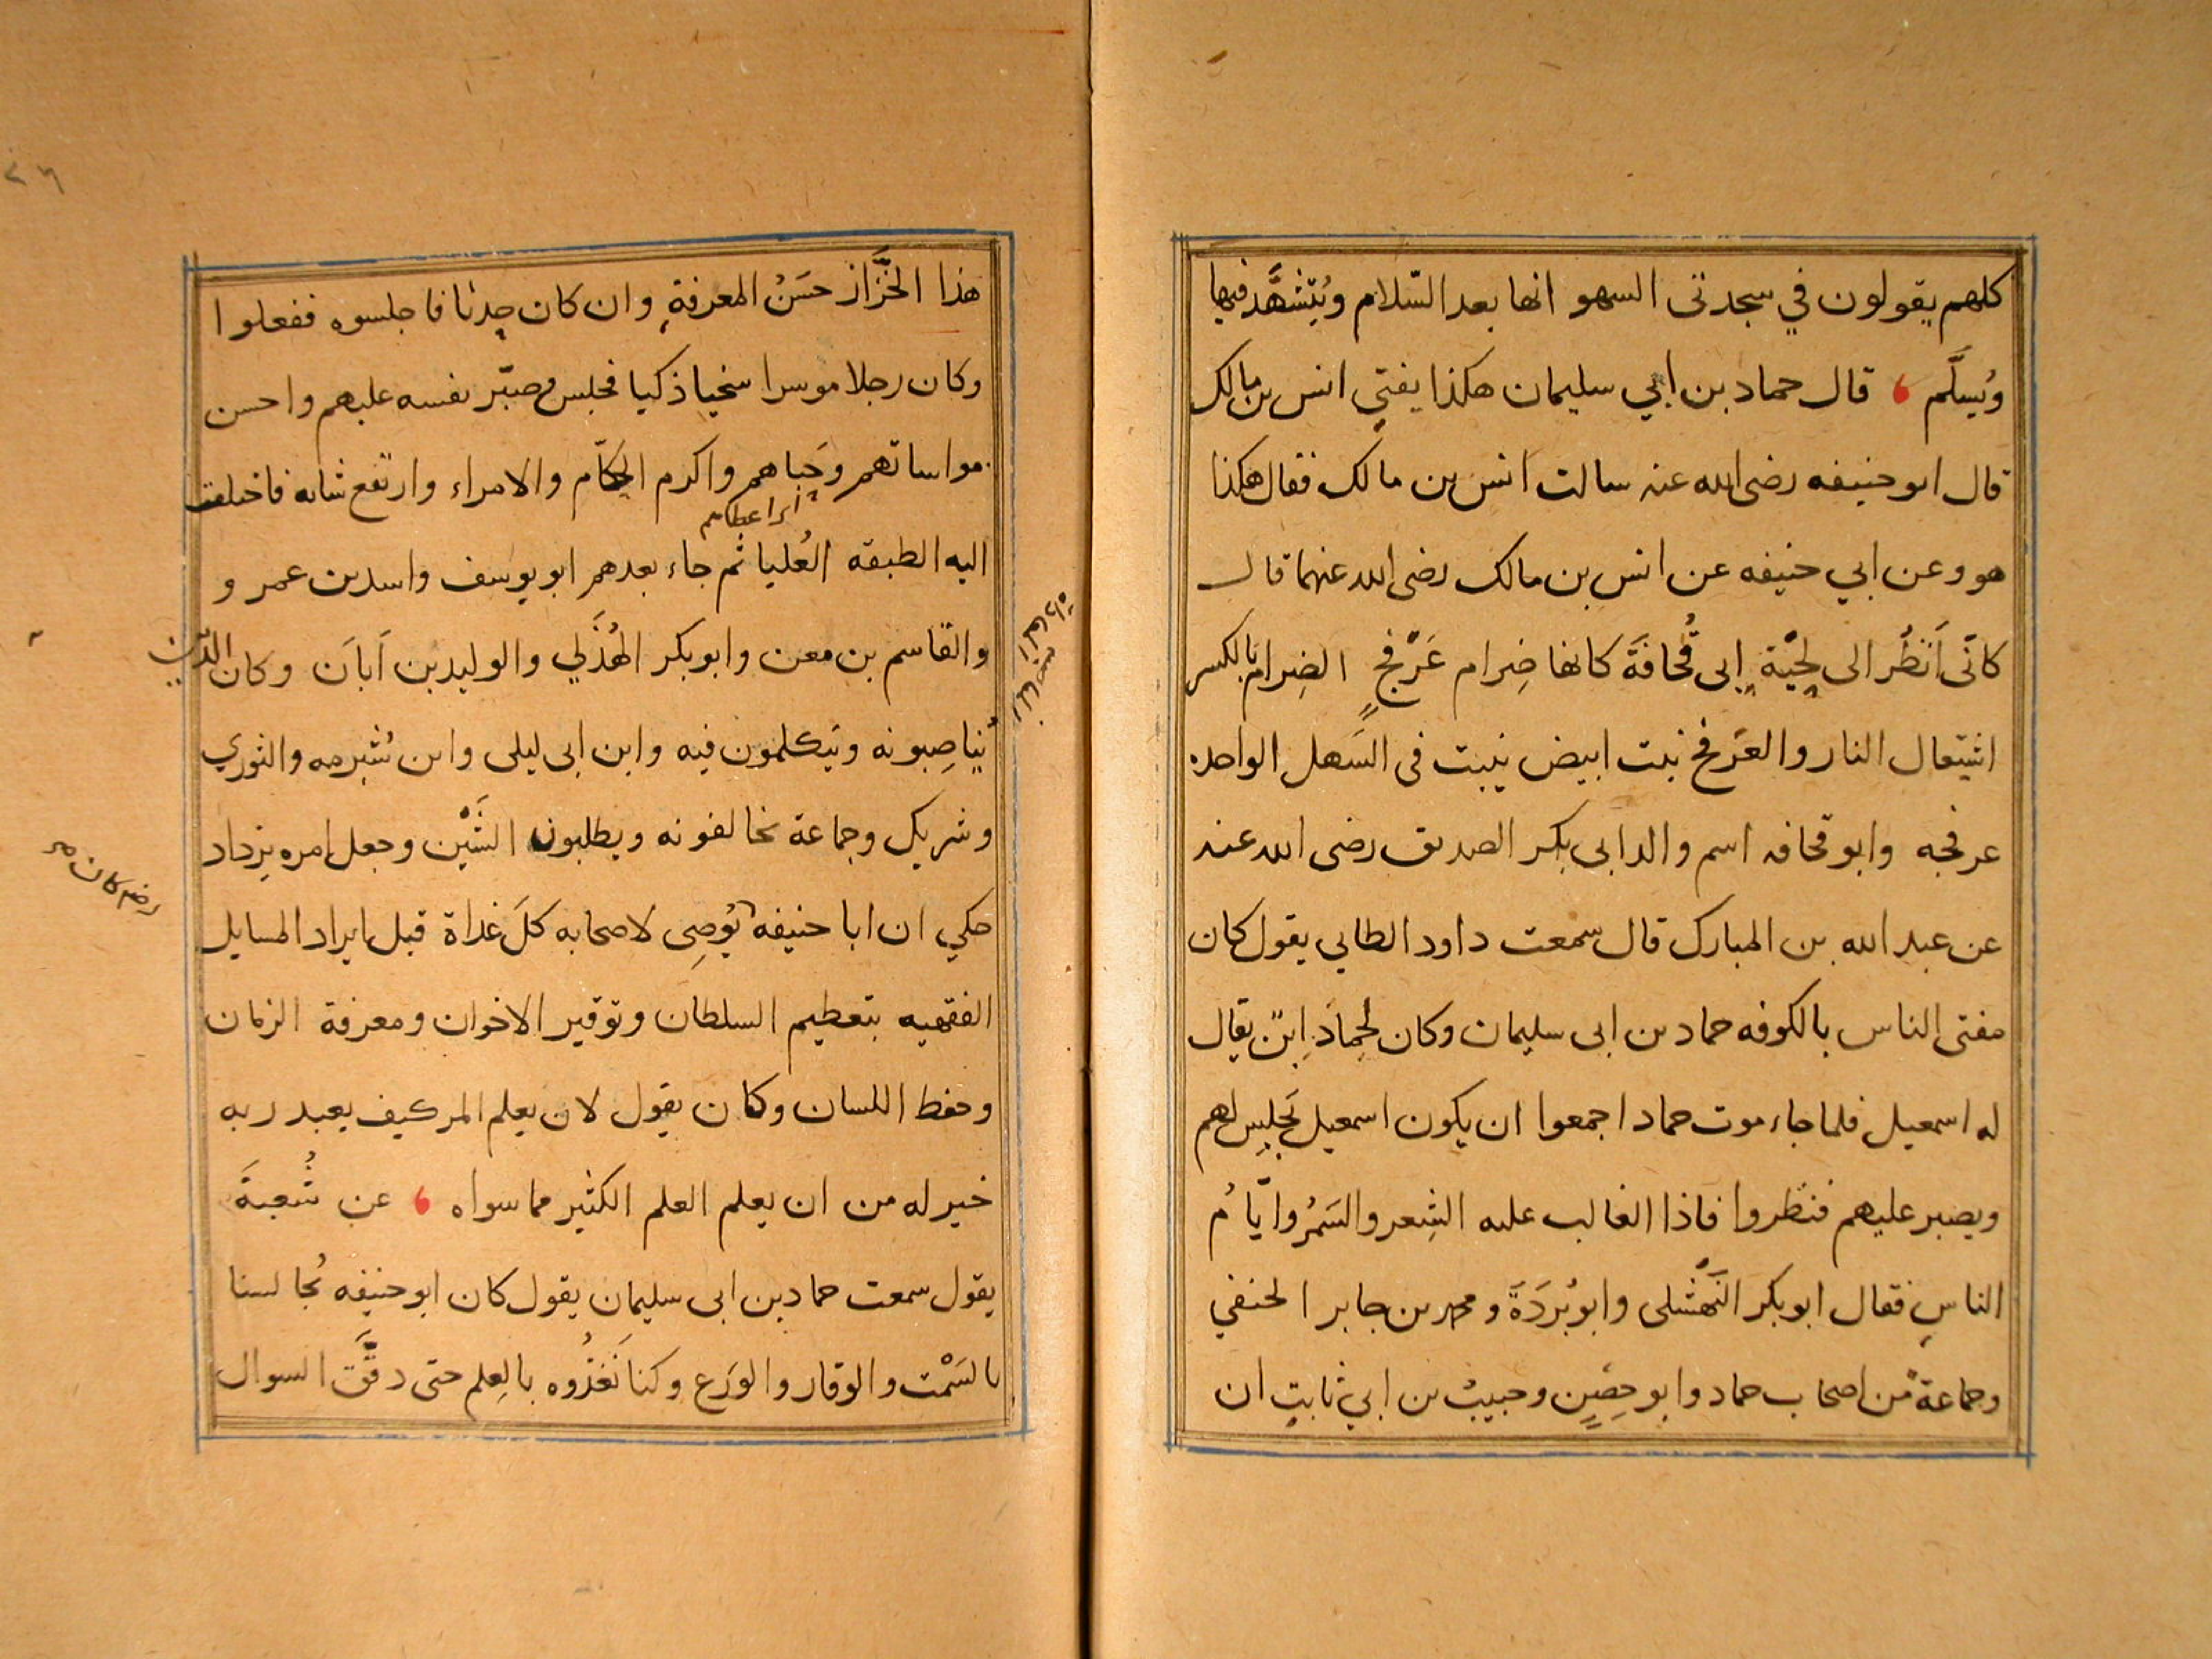 كلهم يقولون في سجدتى السهو انها بعد السّلام ويُتشهَّد فيها
ويُسلَّم ، قال حماد بن ابي سليمان هكذا يفتي انس بن مالك
قال ابو حنيفه رضى الله عنه سالت انس بن مالك فقال هكذا
هو وعن ابي حنيفه عن انس بن مالك رضى الله عنهما قال
كانّى اَنظُر الى لِحْيَة ابى قُحافَةَ كانها ضِرام عَرْفجٍ الضِرام بالكسر
اشتِعال النار والعَرفج نبت ابيض ينبت فى السَهل الواحده
عرفجه وابو قحافه اسم والد ابى بكر الصديق رضى الله عنه
عن عبد الله بن المبارك قال سمعت داود الطايي يقول كان
مفتى الناس بالكوفه حماد بن ابى سليمان وكان لحِمادَ اِبنٌ يقال
له اسمعيل فلما جاء موت حماد اجمعوا ان يكون اسمعيل يَجلِس لهم
ويصبر عليهم فنظروا فاذا الغالب عليه الشِعر والسَمُر وايّامُ
الناسِ فقال ابو بكر النَهْشلى وابو بُردَةَ ومحمد بن جابر الحنفي
وجماعةٌ من اصحاب حماد وابو حصِينٍ وحبيبُ بن ابي ثابتٍ ان
٢٦
هذا الخزَّاز حسَنُ المعرفةِ وان كان حِدثا فاجلسوه ففعلوا
وكان رجلا موسرا سخيا ذكيا فجلس وصبّر نفسه عليهم واحسن
مواساتهم وحَباهم واكرم الحكّام والامراء وارتفع شانه فاختلفت
اى اعطاهم
اليه الطبقه العُليا ثم جاء بعدهم ابو يوسف واسد بن عمر و
والقاسم بن معن وابو بكر الهُذَلي والوليد بن اَبانَ وكان الذين
يُناصِبونه ويتكلمون فيه وابن ابى ليلى وابن شُبرمه والثوري
وشريك وجماعة تخالفونه ويطلبون الشَّيْن وجعل امره يزداد
حكي ان ابا حنيفه يُوصِى لاصحابه كلَ غداة قبل ايراد المسايل
رضه كان صح
الفقهيه بتعظيم السلطان وتوقير الاخوان ومعرفة الزمان
وحفظ اللسان وكان يقول لان يعلم المر كيف يعبد ربه
خير له من ان يعلم العلم الكثير مما سواه ، عن شُعبَةَ
يقول سمعت حماد بن ابى سليمان يقول كان ابو حنيفه يُجالسنا
بالسَمْت والوقار والورَع وكنا نَغذُوه بالِعلم حتى دقَّق السوال